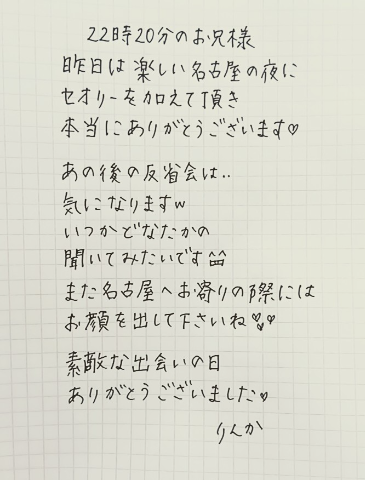 22時20分のお兄様
昨日は楽しい名古屋の夜に
セオリーを加えて頂き
本当にありがとうございます♡
あの後の反省会は..
気になりますw
いつかどなたかの
聞いてみたいです^^
また名古屋へお寄りの際には
お顔を出して下さいね♡♡
素敵な出会いの日
ありがとうございました♡
りんか